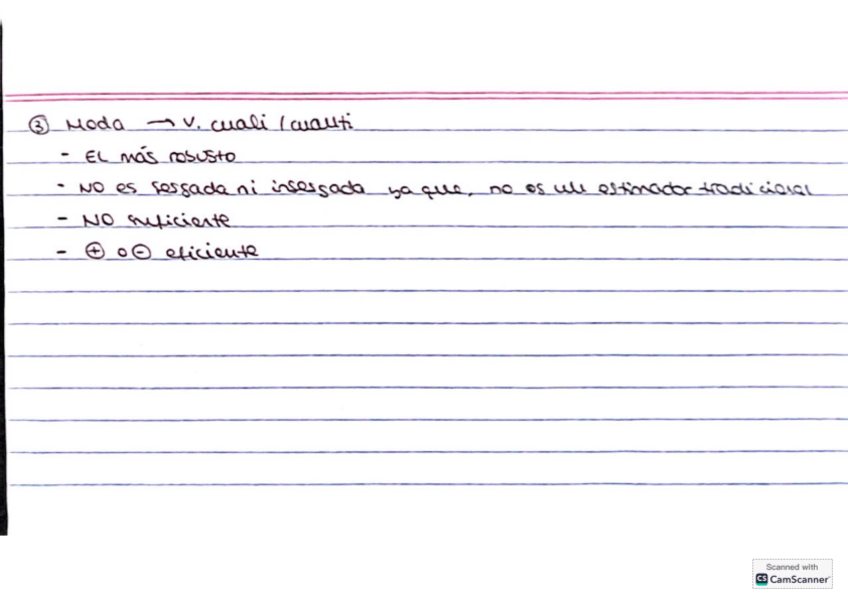 ③ Moda → v. cuali / cuanti
- El más robusto
- NO es sesgada ni insesgada ya que, no es un estimador tradicional
- NO suficiente
- ⊕ o ⊖ eficiente
Scanned with
CS CamScanner